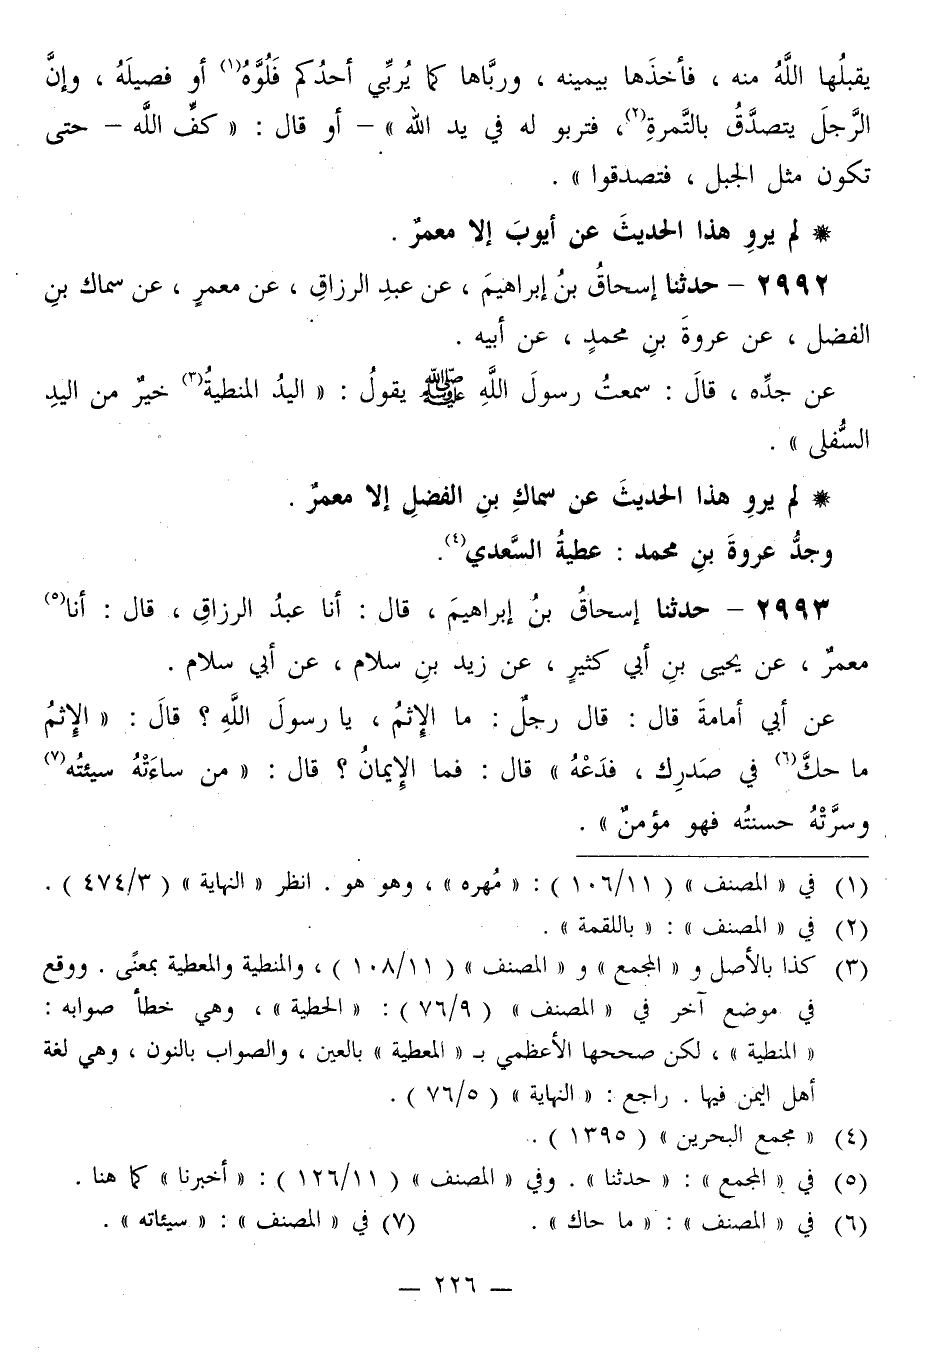 يقبلُها اللَّهُ منه ، فأخذَها بيمينه ، وربَّاها كما يُربِّي أحدُكم فَلُوَّهُ(١) أو فصيلَهُ ، وإنَّ
الرَّجلَ يتصدَّقُ بالتَّمرةِ(٢)، فتربو له في يد الله » – أو قال : « كفِّ اللَّه – حتى
تكون مثل الجبل ، فتصدقوا » .
* لم يروِ هذا الحديثَ عن أيوبَ إلا معمرٌ .
٢٩٩٢ – حدثنا إسحاقُ بنُ إبراهيمَ ، عن عبدِ الرزاقِ ، عن معمرٍ ، عن سماك بنِ
الفضل ، عن عروةَ بنِ محمدٍ ، عن أبيه .
عن جدِّه ، قالَ : سمعتُ رسولَ اللَّهِ ﷺ يقولُ : « اليدُ المنطيةُ(٣) خيرٌ من اليدِ
السُّفلى » .
* لم يروِ هذا الحديثَ عن سماكِ بنِ الفضلِ إلا معمرٌ .
وجدُّ عروةَ بنِ محمد : عطيةُ السَّعدي(٤).
٢٩٩٣ – حدثنا إسحاقُ بنُ إبراهيمَ ، قال : أنا عبدُ الرزاقِ ، قال : أنا(٥)
معمرٌ ، عن يحيى بنِ أبي كثيرٍ ، عن زيد بنِ سلام ، عن أبي سلام .
عن أبي أمامةَ قال : قال رجلٌ : ما الإِثمُ ، يا رسولَ اللَّهِ ؟ قالَ : « الإِثمُ
ما حكَّ(٦) في صَدرِك ، فدَعْهُ » قال : فما الإِيمانُ ؟ قال : « من ساءَتْهُ سيئتُه(٧)
وسرَّتْهُ حسنتُه فهو مؤمنٌ » .
(١) في « المصنف » ( ١٠٦/١١ ) : « مُهره » ، وهو هو . انظر « النهاية » ( ٤٧٤/٣ ) .
(٢) في « المصنف » : « باللقمة » .
(٣) كذا بالأصل و « المجمع » و « المصنف » ( ١٠٨/١١ ) ، والمنطية والمعطية بمعنًى . ووقع
في موضع آخر في « المصنف » ( ٧٦/٩ ) : « الحطية » ، وهي خطأ صوابه :
« المنطية » ، لكن صححها الأعظمي بـ « المعطية » بالعين ، والصواب بالنون ، وهي لغة
أهل اليمن فيها . راجع : « النهاية » ( ٧٦/٥ ) .
(٤) « مجمع البحرين » ( ١٣٩٥ ) .
(٥) في « المجمع » : « حدثنا » . وفي « المصنف » ( ١٢٦/١١ ) : « أخبرنا » كما هنا .
(٦) في « المصنف » : « ما حاك » . (٧) في « المصنف » : « سيئاته » .
— ٢٢٦ —